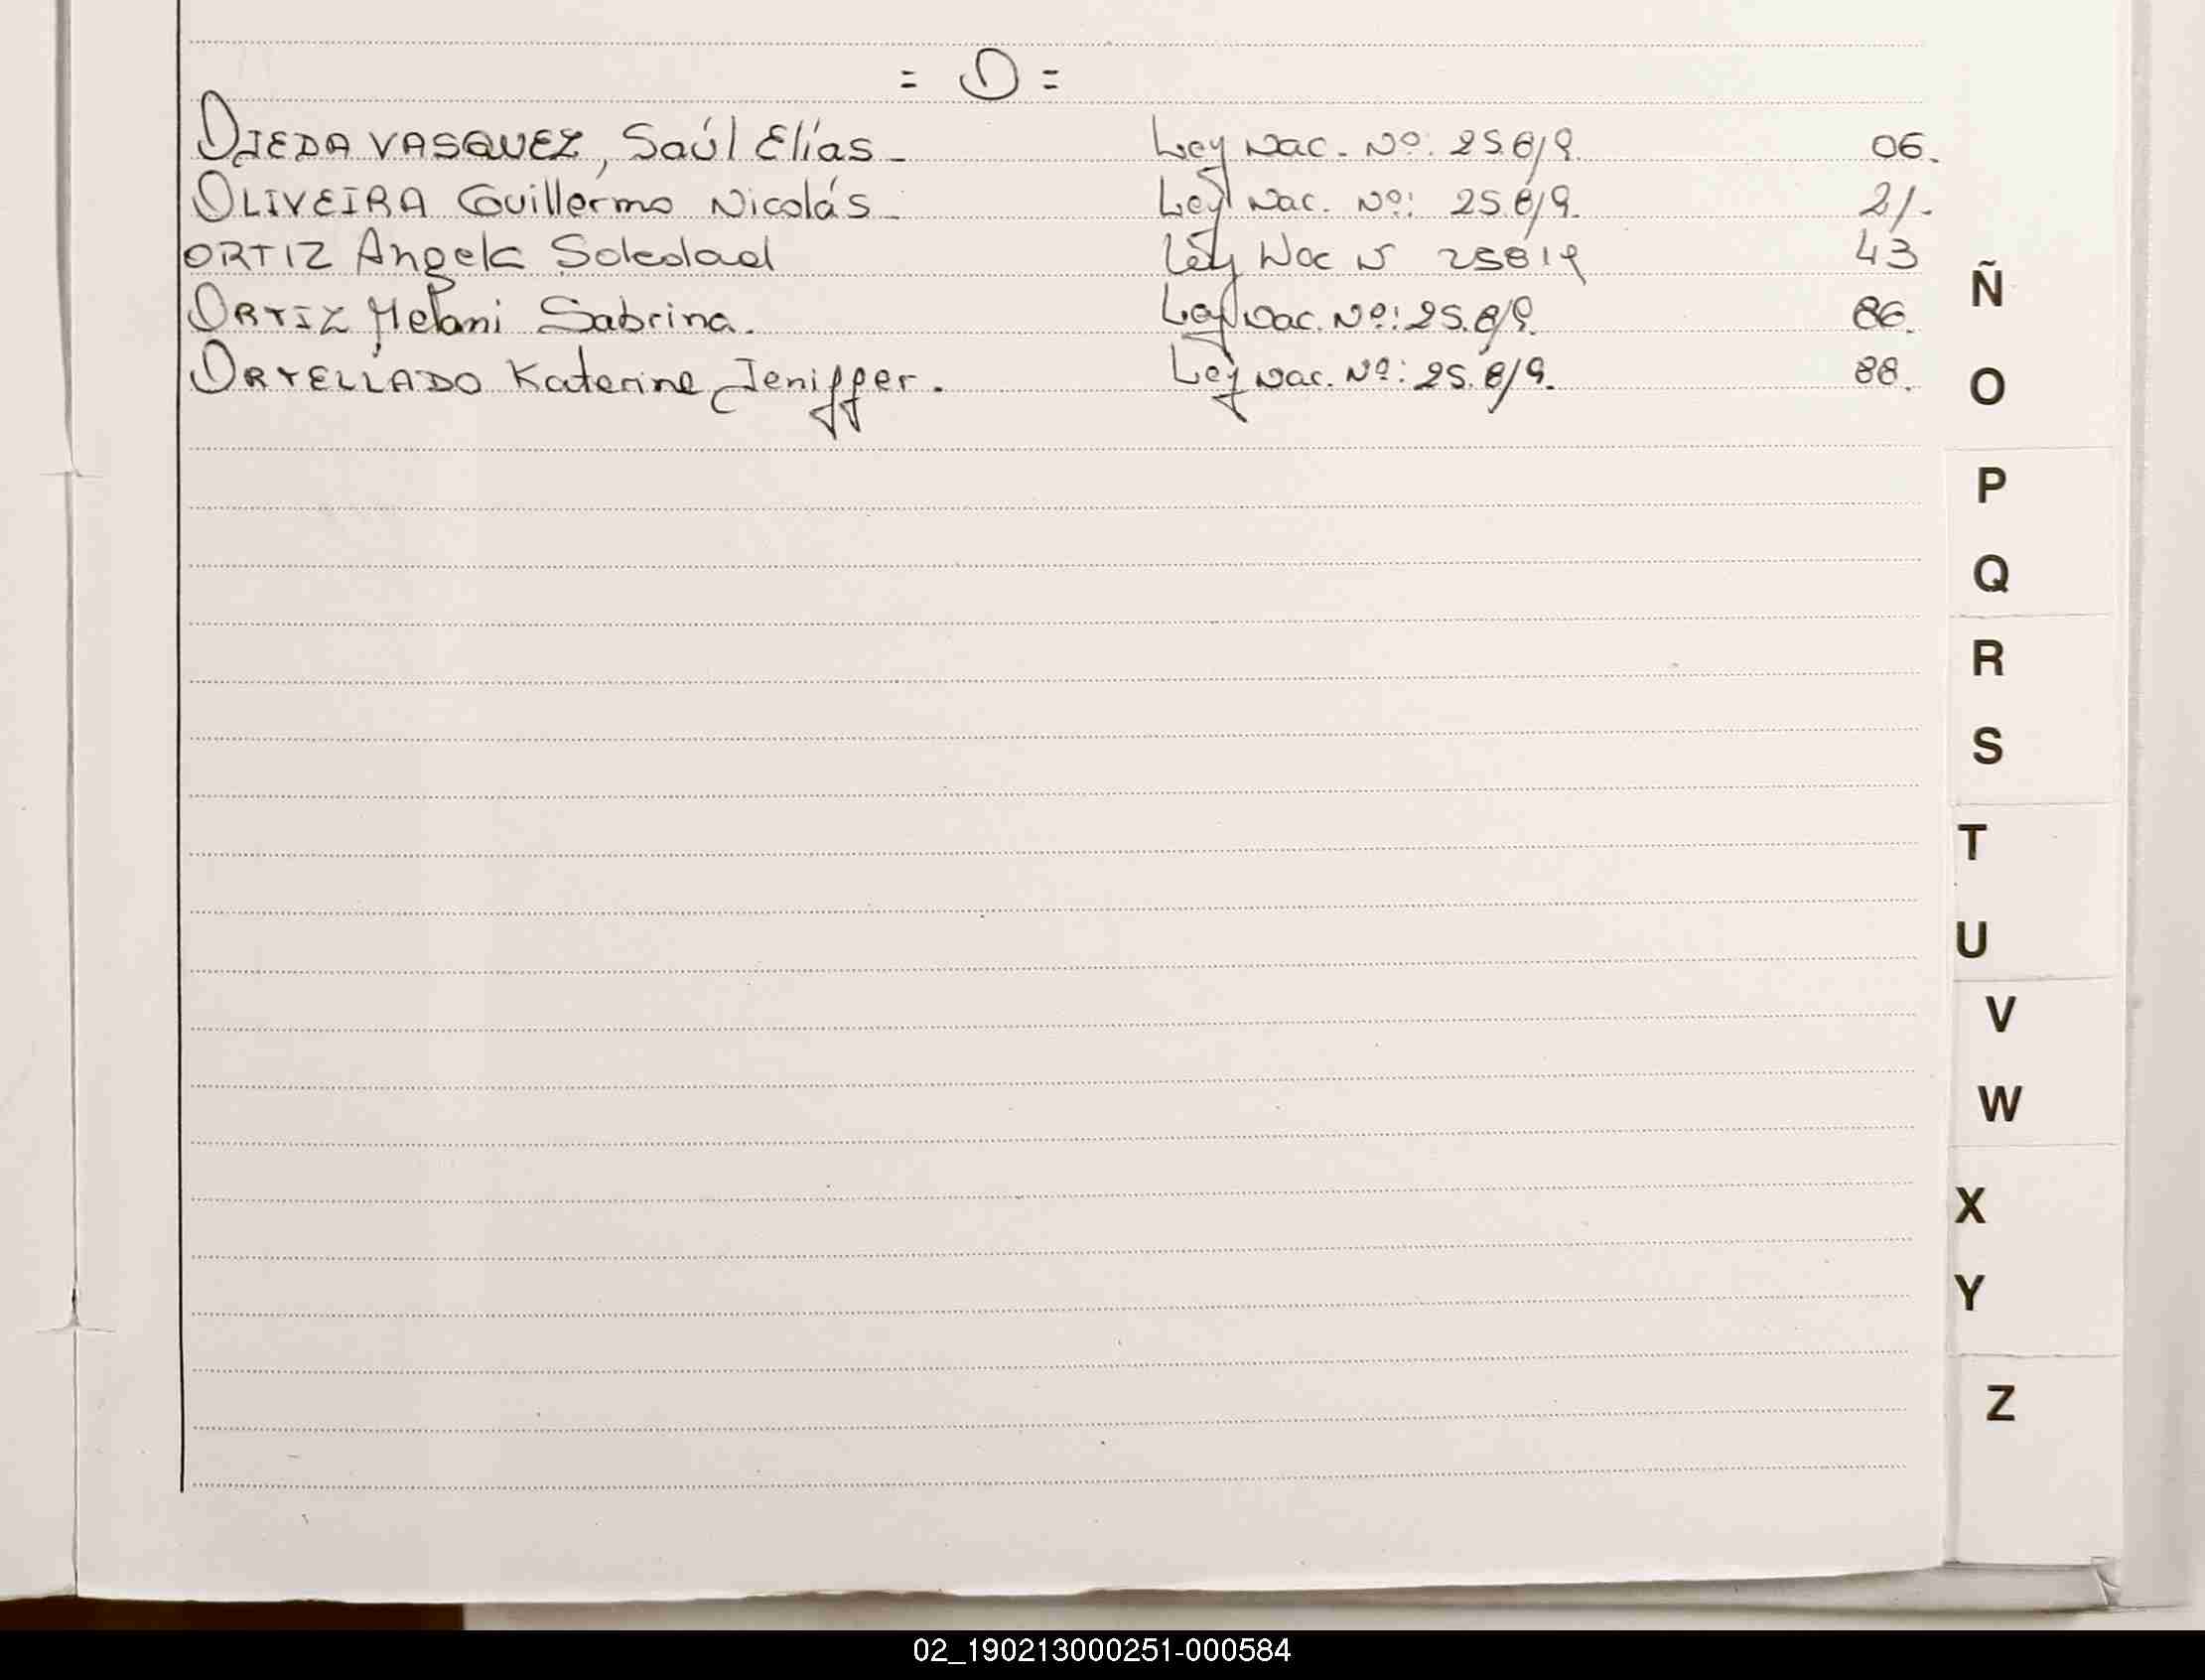 = O =
OJEDA VASQUEZ, Saúl Elías - Ley Nac. Nº: 25.819. 06.
OLIVEIRA Guillermo Nicolás - Ley Nac. Nº: 25.819. 21.
ORTIZ Angela Soledad Ley Nac N 25819 43
ORTIZ Melani Sabrina. Ley Nac. Nº: 25.819. 86.
ORTELLADO Katerine Jeniffer. Ley Nac. Nº: 25.819. 88.
Ñ
O
P
Q
R
S
T
U
V
W
X
Y
Z
02_190213000251-000584